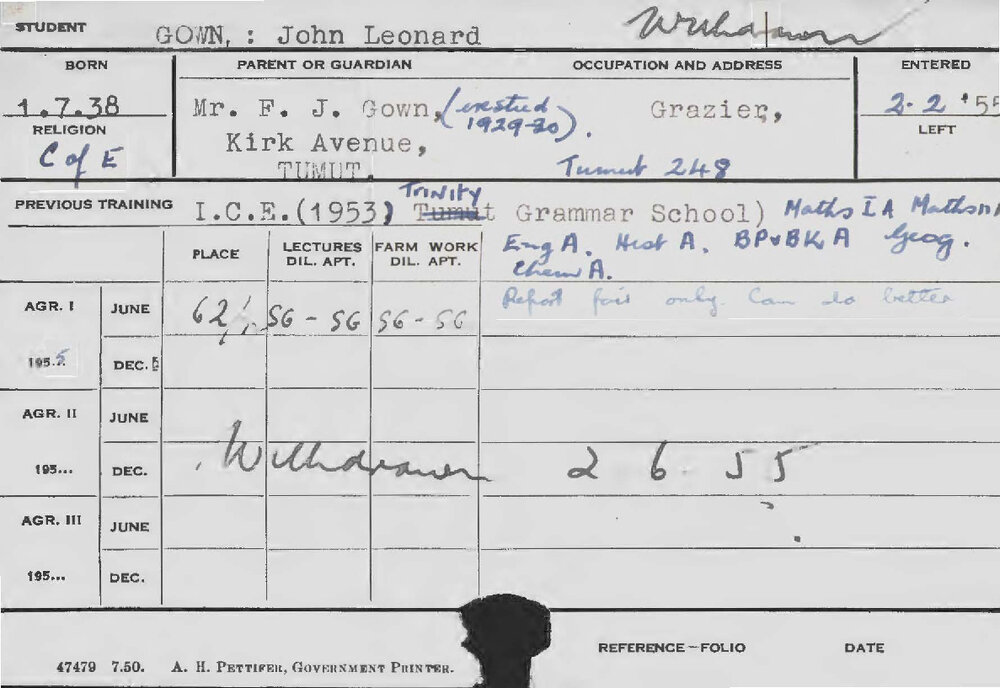 STUDENT GOWN, : John Leonard Withdrawn
BORN PARENT OR GUARDIAN OCCUPATION AND ADDRESS ENTERED
1.7.38 Mr. F. J. Gown, Grazier, 2-2 '55
1929-30).
RELIGION Kirk Avenue, LEFT
C of E TUMUT. Tumut 248
PREVIOUS TRAINING I.C.E.(1953) Tumut TRINITY Grammar School) Maths I A Maths II A
Eng A. Hist A. BP&BK A Geog.
Chem A.
PLACE LECTURES DIL. APT. FARM WORK DIL. APT.
Report fair only. Can do better
AGR. I JUNE 62 SG - SG SG - SG
1955 DEC.
AGR. II JUNE
195... DEC. Withdrawn 2 6. 55
AGR. III JUNE
195... DEC.
REFERENCE-FOLIO DATE
47479 7.50. A. H. PETTIFER, GOVERNMENT PRINTER.